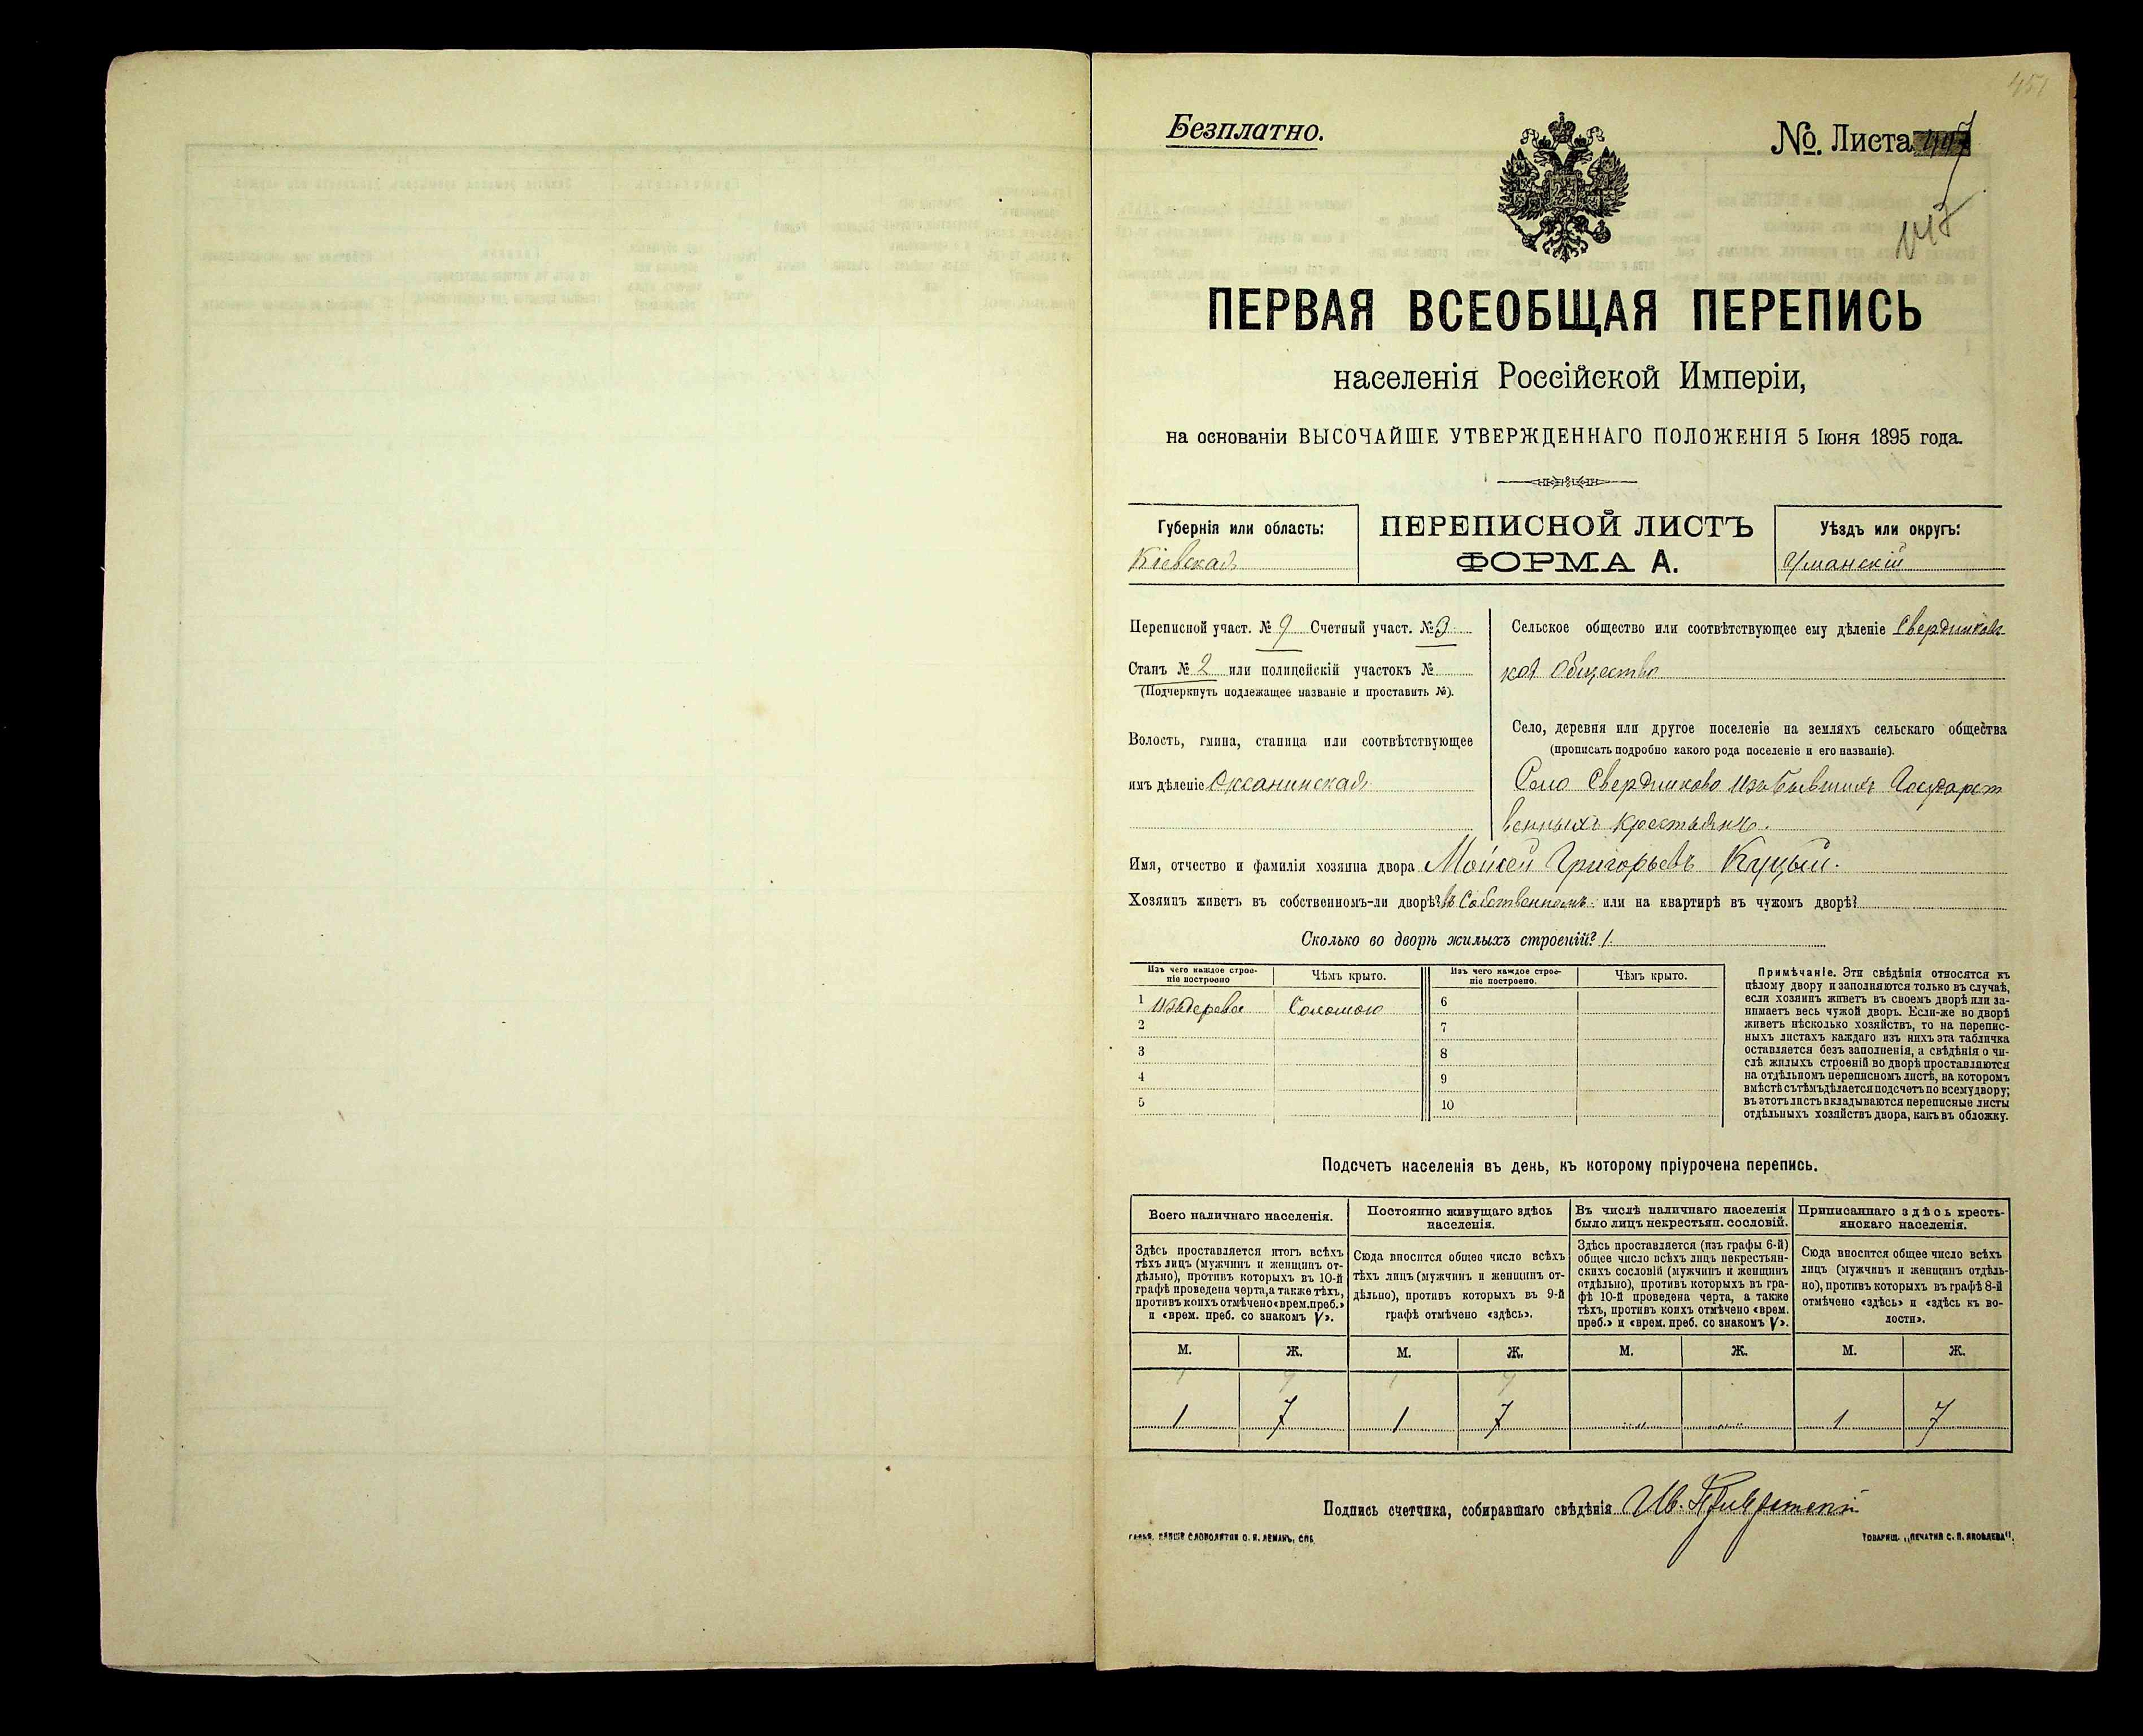 451
Безплатно.
№. Листа
147
ПЕРВАЯ ВСЕОБЩАЯ ПЕРЕПИСЬ
населенія Россійской Имперіи,
на основаніи ВЫСОЧАЙШЕ УТВЕРЖДЕННАГО ПОЛОЖЕНІЯ 5 Іюня 1895 года.
Губернія или область:
Кіевская
ПЕРЕПИСНОЙ ЛИСТЪ
ФОРМА А.
Уѣздъ или округъ:
Уманскій
Переписной участ. № 9 Счетный участ. № 3
Станъ № 2 или полицейскій участокъ №
(Подчеркнуть подлежащее названіе и проставить №).
Волость, гмина, станица или соотвѣтствующее
имъ дѣленіе Оксанинская
Сельское общество или соотвѣтствующее ему дѣленіе Свердликовс
кое Общество
Село, деревня или другое поселеніе на земляхъ сельскаго общества
(прописать подробно какого рода поселеніе и его названіе).
Село Свердликово Изъ бывшихъ Государст
венныхъ Крестьянъ.
Имя, отчество и фамилія хозяина двора Мойсей Григорьевъ Куцый.
Хозяинъ живетъ въ собственномъ-ли дворѣ? въ Собственномъ или на квартирѣ въ чужомъ дворѣ?
Сколько во дворѣ жилыхъ строеній? 1
Изъ чего каждое строе-
ніе построено
Чѣмъ крыто.
Изъ чего каждое строе-
ніе построено.
Чѣмъ крыто.
1 Изъ дерева Соломою 6
2 7
3 8
4 9
5 10
Примѣчаніе. Эти свѣдѣнія относятся къ
цѣлому двору и заполняются только въ случаѣ,
если хозяинъ живетъ въ своемъ дворѣ или за-
нимаетъ весь чужой дворъ. Если-же во дворѣ
живетъ нѣсколько хозяйствъ, то на перепис-
ныхъ листахъ каждаго изъ нихъ эта табличка
оставляется безъ заполненія, а свѣдѣнія о чи-
слѣ жилыхъ строеній во дворѣ проставляются
на отдѣльномъ переписномъ листѣ, на которомъ
вмѣстѣ съ тѣмъ дѣлается подсчетъ по всему двору;
въ этотъ листъ вкладываются переписные листы
отдѣльныхъ хозяйствъ двора, какъ въ обложку.
Подсчетъ населенія въ день, къ которому пріурочена перепись.
Всего наличнаго населенія.
Здѣсь проставляется итогъ всѣхъ
тѣхъ лицъ (мужчинъ и женщинъ от-
дѣльно), противъ которыхъ въ 10-й
графѣ проведена черта, а также тѣхъ,
противъ коихъ отмѣчено «врем. преб.»
и «врем. преб. со знакомъ V».
Постоянно живущаго здѣсь
населенія.
Сюда вносится общее число всѣхъ
тѣхъ лицъ (мужчинъ и женщинъ от-
дѣльно), противъ которыхъ въ 9-й
графѣ отмѣчено «здѣсь».
Въ числѣ наличнаго населенія
было лицъ некрестьян. сословій.
Здѣсь проставляется (изъ графы 6-й)
общее число всѣхъ лицъ некрестьян-
скихъ сословій (мужчинъ и женщинъ
отдѣльно), противъ которыхъ въ гра-
фѣ 10-й проведена черта, а также
тѣхъ, противъ коихъ отмѣчено «врем.
преб.» и «врем. преб. со знакомъ V».
Приписаннаго здѣсь кресть-
янскаго населенія.
Сюда вносится общее число всѣхъ
лицъ (мужчинъ и женщинъ отдѣль-
но), противъ которыхъ въ графѣ 8-й
отмѣчено «здѣсь» и «здѣсь къ во-
лости».
М. Ж. М. Ж. М. Ж. М. Ж.
1 7 1 7
1 7 1 7 1 7
Подпись счетчика, собиравшаго свѣдѣнія Ив.
СЛОВОЛИТНИ О. И. ЛЕМАНЪ, СПБ.
ТОВАРИЩ. „ПЕЧАТНЯ С. П. ЯКОВЛЕВА".